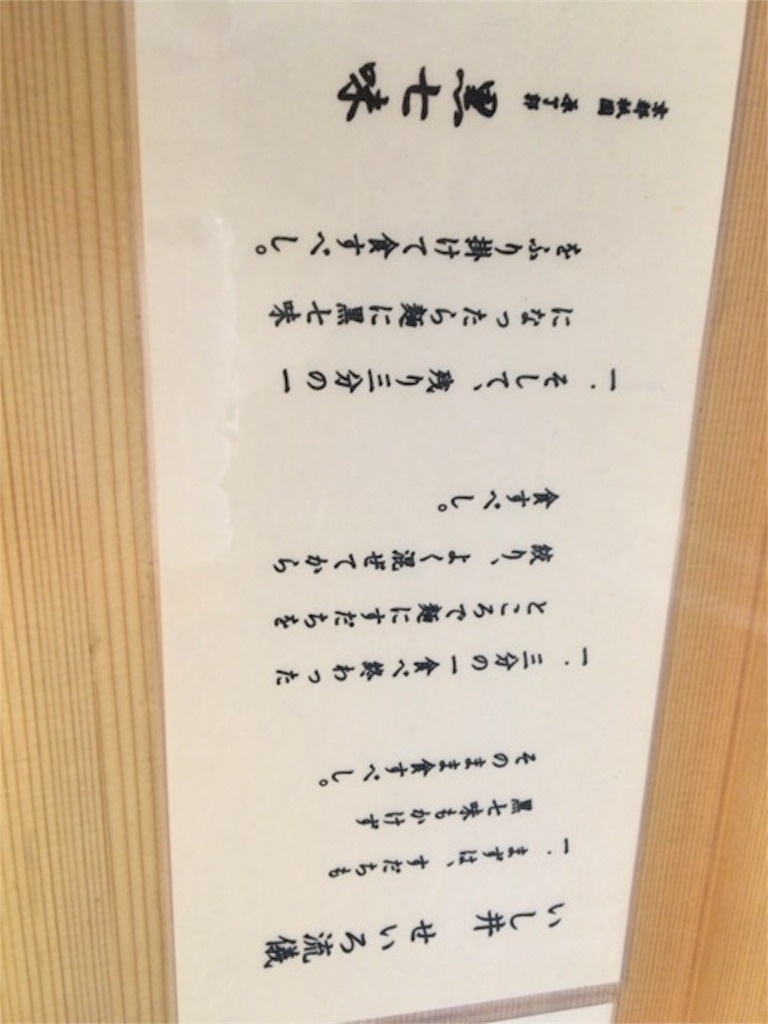 いし井 せいろ流儀
一．まずは、すだちも
黒七味もかけず
そのまま食すべし。
一．三分の一食べ終わった
ところで麺にすだちを
絞り、よく混ぜてから
食すべし。
一．そして、残り三分の一
になったら麺に黒七味
をふり掛けて食すべし。
黒七味
京都祇園 原了郭